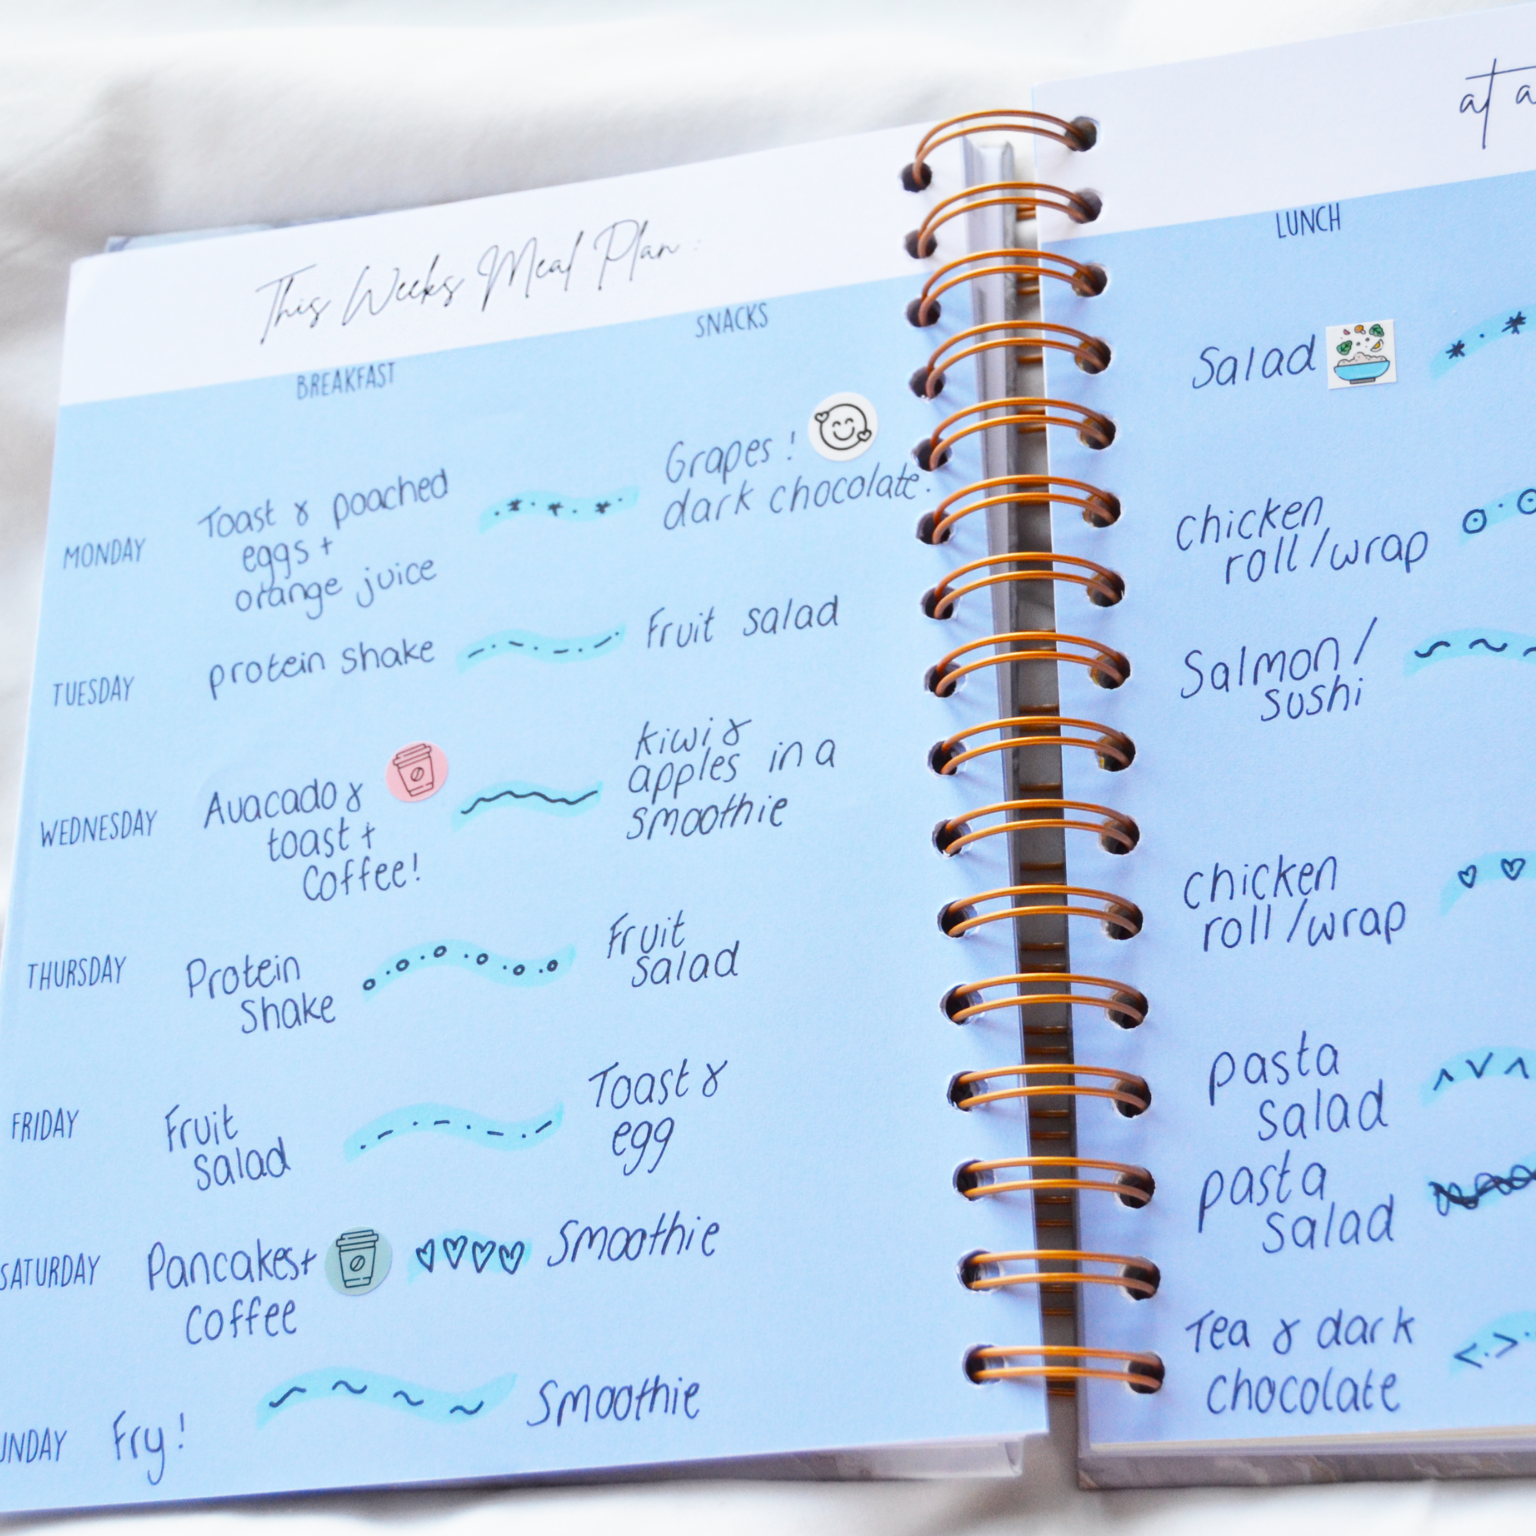 This Weeks Meal Plan :
BREAKFAST
SNACKS
MONDAY
Toast & poached
eggs +
orange juice
Grapes !
dark chocolate.
TUESDAY
protein shake
Fruit salad
WEDNESDAY
Avacado &
toast +
Coffee!
kiwi &
apples in a
smoothie
THURSDAY
Protein
Shake
Fruit
Salad
FRIDAY
Fruit
Salad
Toast &
egg
SATURDAY
Pancakes+
Coffee
Smoothie
UNDAY
Fry!
Smoothie
at a
LUNCH
Salad
Chicken
roll/wrap
Salmon/
sushi
Chicken
roll/wrap
pasta
salad
pasta
salad
Tea & dark
chocolate